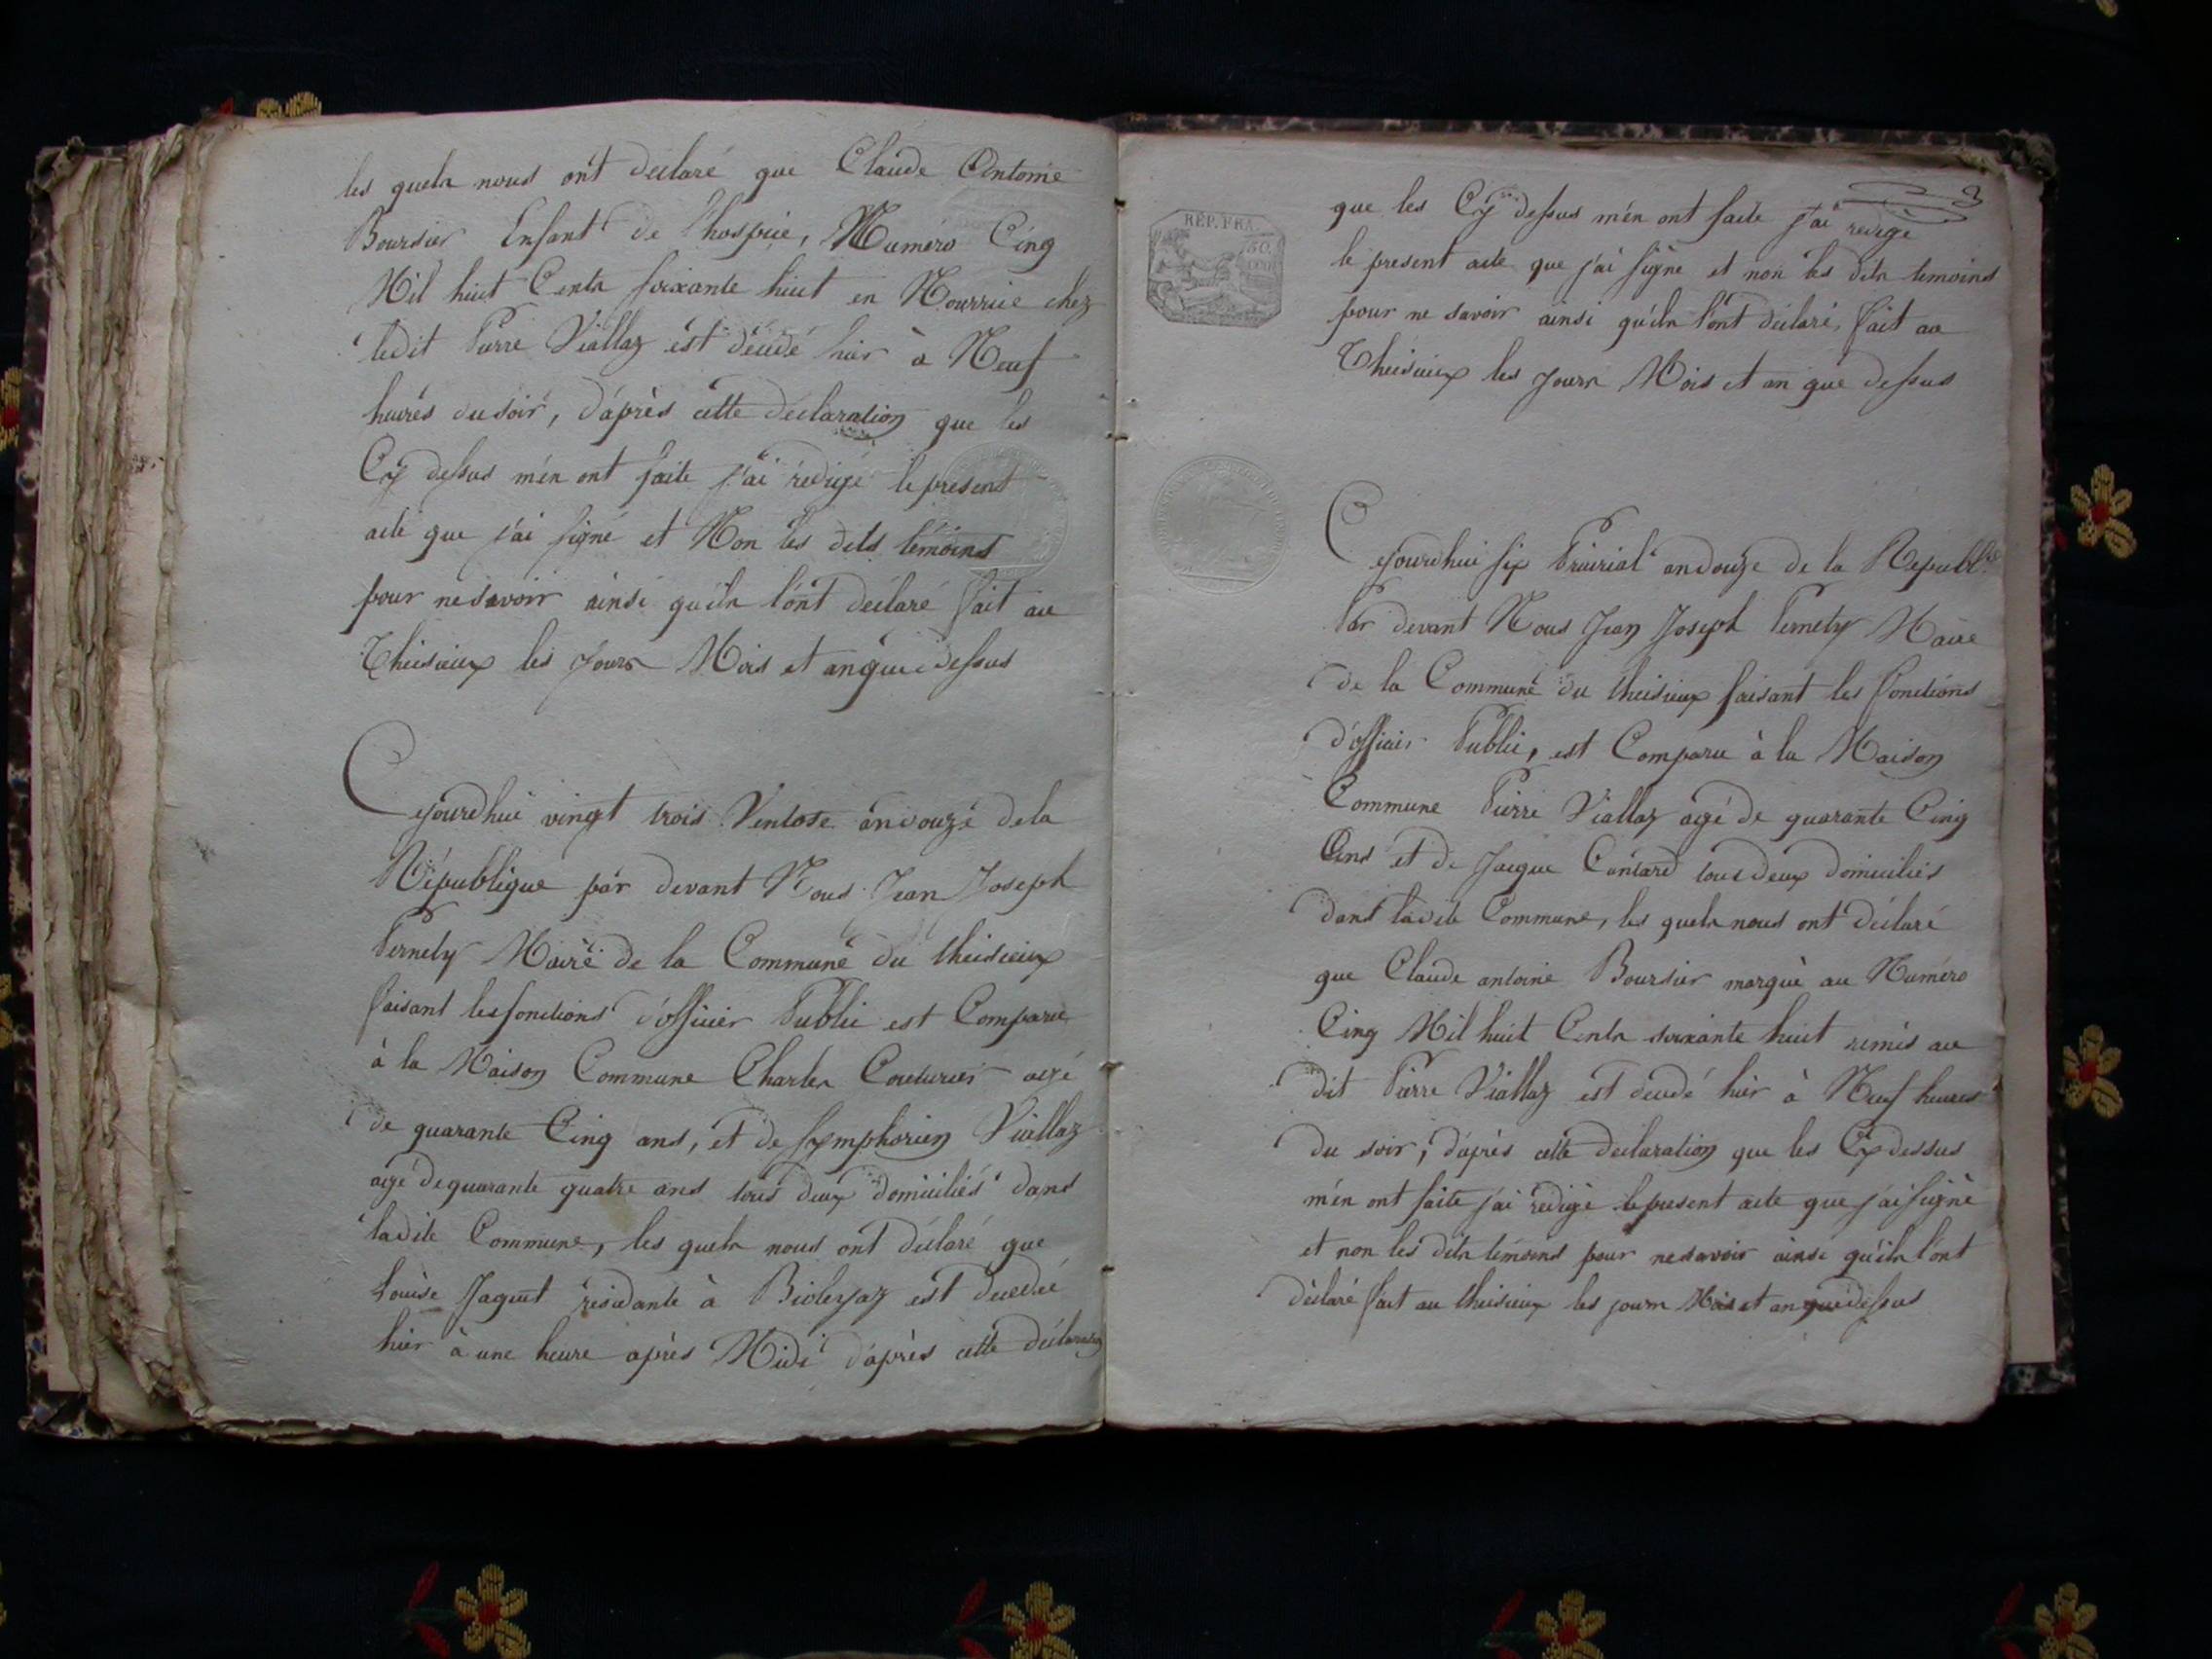 les quels nous ont déclaré que Claude Antoine
Boursier Enfant de l'hospice, Numéro Cinq
Mil huit Cents soixante huit en Nourrice chez
ledit Pierre Viallaz est décédé hier à Neuf
heures du soir, d'après cette déclaration que les
Cy dessus m'en ont faite j'ai rédigé le présent
acte que j'ai signé et Non les dits témoins
pour ne savoir ainsi qu'ils l'ont déclaré fait au
Theisieux les Jours Mois et an que dessus
Cejourdhui vingt trois Ventose an douze de la
République par devant Nous Jean Joseph
Pernety Maire de la Commune du theisieux
faisant les fonctions d'officier Public est Comparu
à la Maison Commune Charles Couturier agé
de quarante Cinq ans, et de Symphorien Viallaz
agé de quarante quatre ans tous deux domiciliés dans
ladite Commune, les quels nous ont déclaré que
Louise Jaquet résidante à Bioleyaz est décédée
hier à une heure après Midi d'après cette déclaration
que les Cy dessus m'en ont faite j'ai rédigé
REP. FRA.
le present acte que j'ai signé et non les dits temoins
pour ne savoir ainsi qu'ils l'ont déclaré, fait au
Theisieux les Jours Mois et an que dessus
Cejourdhui six Prairial an douze de la Republ.
Par devant Nous Jean Joseph Pernety Maire
de la Commune du theisieux faisant les fonctions
d'officier Public, est Comparu à la Maison
Commune Pierre Viallaz agé de quarante Cinq
Ans et de Jacque tous deux domiciliés
dans ladite Commune, les quels nous ont déclaré
que Claude antoine Boursier marqué au Numéro
Cinq Mil huit Cents soixante huit remis au
dit Pierre Viallaz est decedé hier à Neuf heures
du soir, d'après cette declaration que les Cy dessus
m'en ont faite j'ai rédigé le present acte que j'ai signé
et non les dits témoins pour ne savoir ainsi qu'ils l'ont
déclaré fait au theisieux les jours Mois et an que dessus